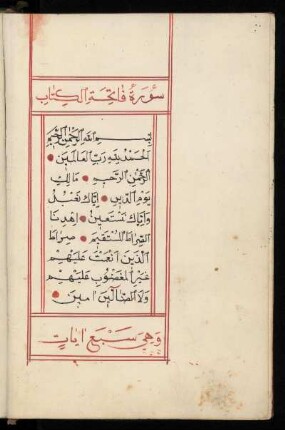 سورة فاتحة الكتاب
بسم الله الرحمن الرحيم
الحمد لله رب العالمين
الرحمن الرحيم مالك
يوم الدين اياك نعبد
واياك نستعين اهدنا
الصراط المستقيم صراط
الذين انعمت عليهم
غير المغضوب عليهم
ولا الضالين امين
وهي سبع ايات